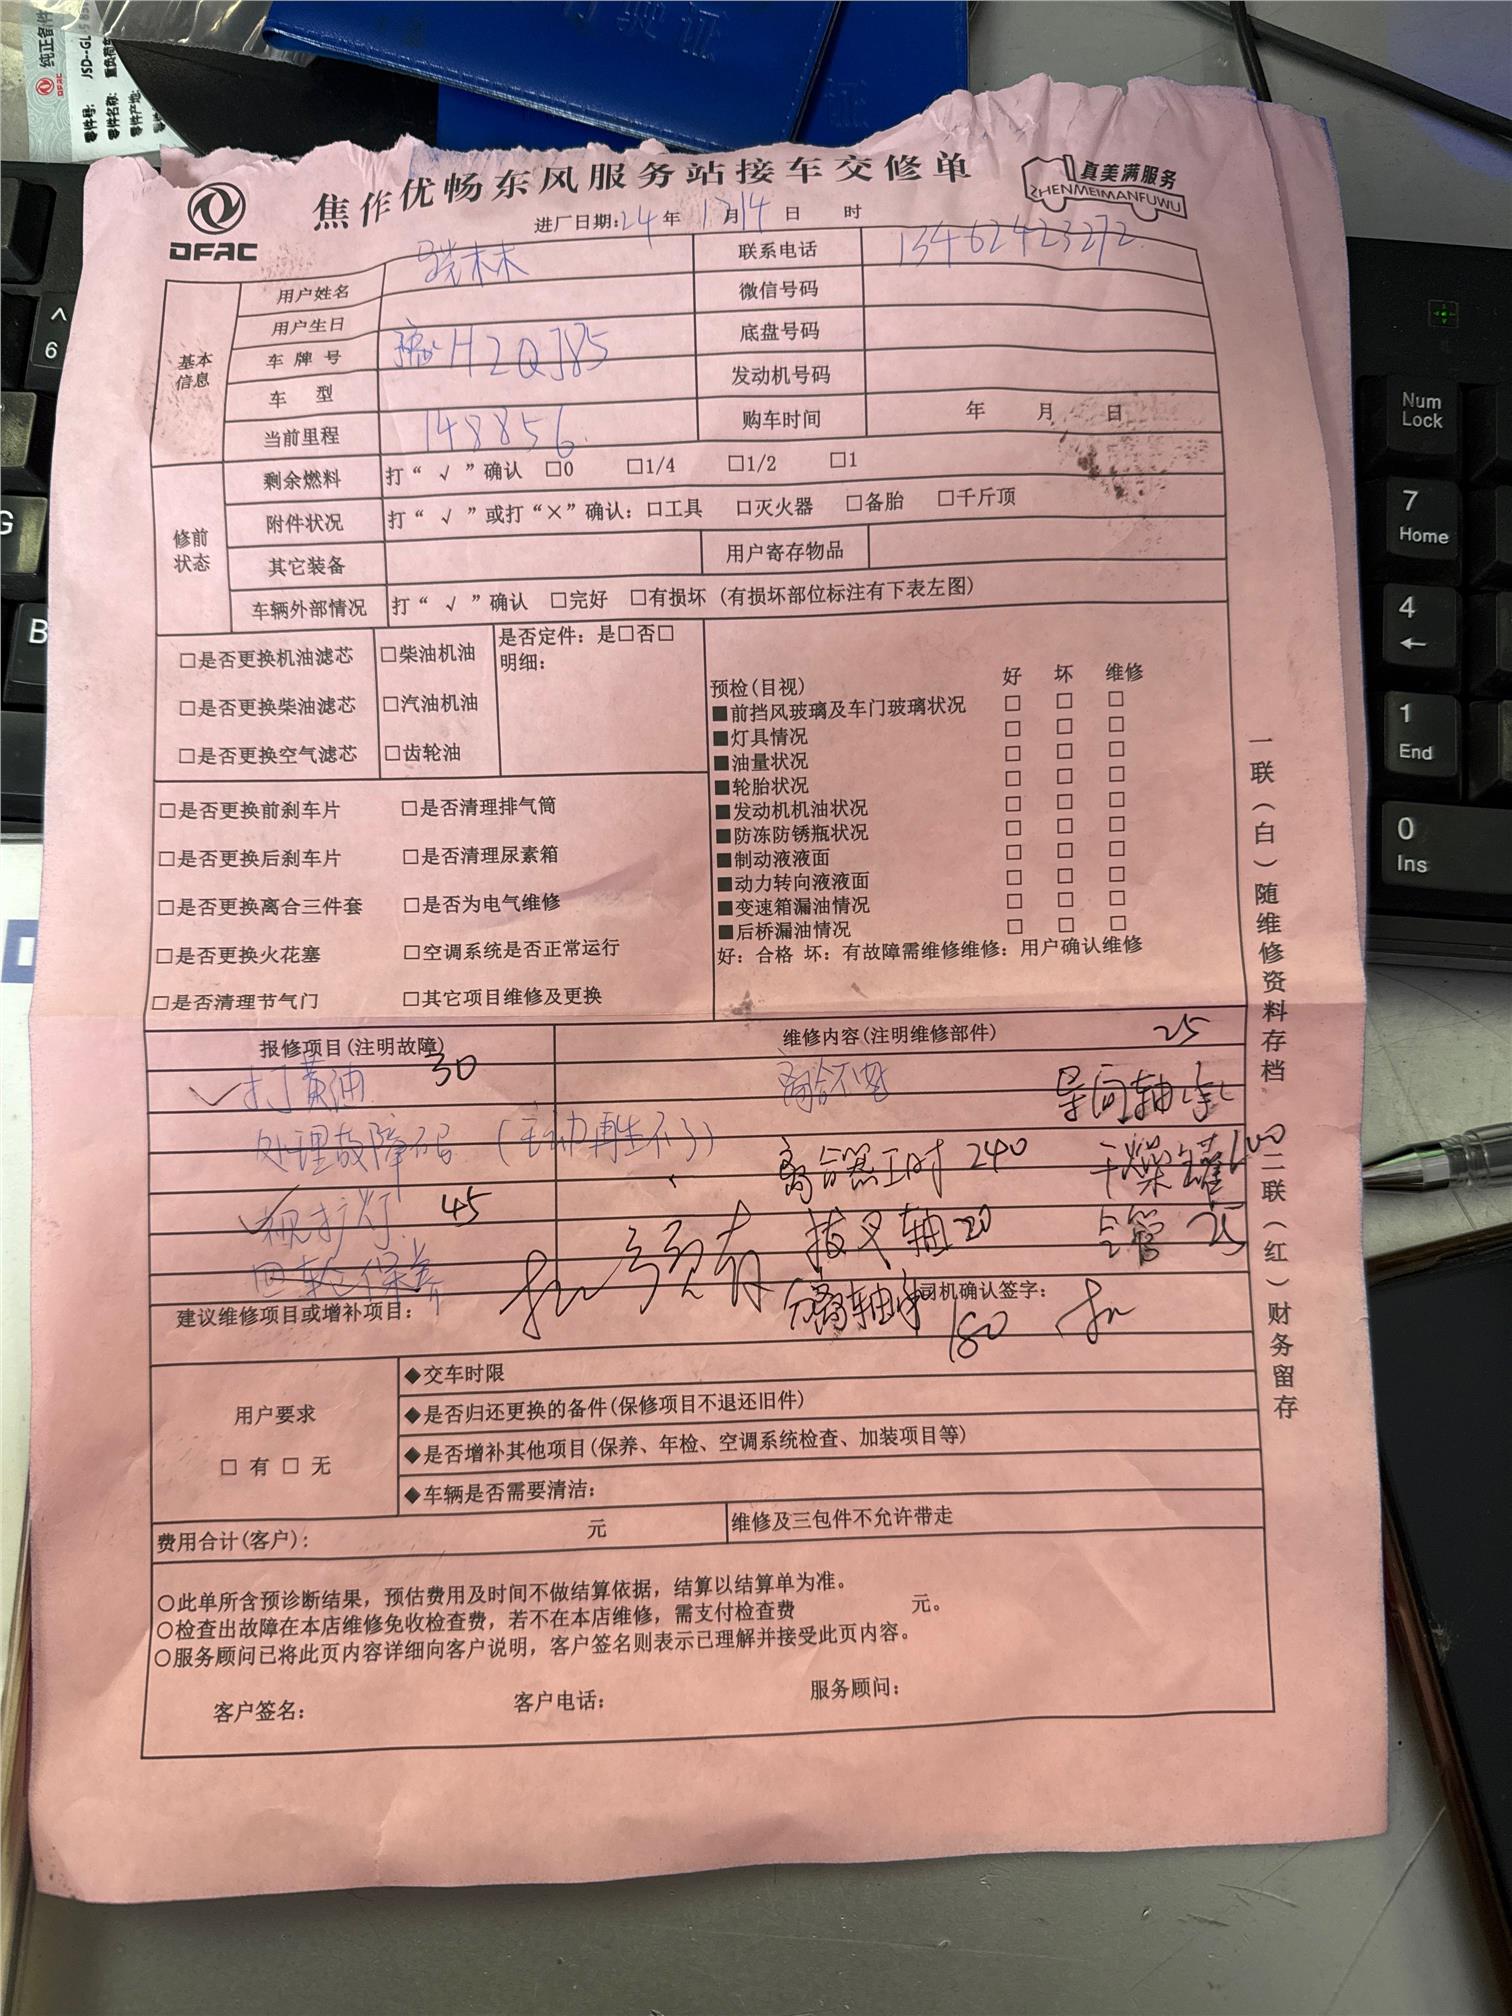 纯正备件
DFAC
零件号: JSD--GL
零件名称:
零件产地:
DFAC
焦作优畅东风服务站接车交修单
真美满服务
ZHENMEIMANFUWU
进厂日期: 24 年 12 月 14 日 时
基本信息
用户姓名
联系电话 13462423272
用户生日
微信号码
车牌号 豫H2QJ85
底盘号码
车 型
发动机号码
当前里程 148856
购车时间 年 月 日
修前状态
剩余燃料 打“ √ ”确认 □0 □1/4 □1/2 □1
附件状况 打“ √ ”或打“×”确认: □工具 □灭火器 □备胎 □千斤顶
其它装备
用户寄存物品
车辆外部情况 打“ √ ”确认 □完好 □有损坏 (有损坏部位标注有下表左图)
□是否更换机油滤芯 □柴油机油
□是否更换柴油滤芯 □汽油机油
□是否更换空气滤芯 □齿轮油
是否定件: 是□否□
明细:
□是否更换前刹车片 □是否清理排气筒
□是否更换后刹车片 □是否清理尿素箱
□是否更换离合三件套 □是否为电气维修
□是否更换火花塞 □空调系统是否正常运行
□是否清理节气门 □其它项目维修及更换
预检(目视) 好 坏 维修
■前挡风玻璃及车门玻璃状况 □ □ □
■灯具情况 □ □ □
■油量状况 □ □ □
■轮胎状况 □ □ □
■发动机机油状况 □ □ □
■防冻防锈瓶状况 □ □ □
■制动液液面 □ □ □
■动力转向液液面 □ □ □
■变速箱漏油情况 □ □ □
■后桥漏油情况 □ □ □
好: 合格 坏: 有故障需维修维修: 用户确认维修
报修项目(注明故障)
维修内容(注明维修部件) 25
√打黄油 30
导向轴承
处理故障码(主动再生不了)
离合器工时 240
干燥罐
灯 45
拔叉轴 20
气管 25
四轮保养
分离轴承 180
建议维修项目或增补项目:
司机确认签字:
用户要求
□ 有 □ 无
◆交车时限
◆是否归还更换的备件(保修项目不退还旧件)
◆是否增补其他项目(保养、年检、空调系统检查、加装项目等)
◆车辆是否需要清洁:
费用合计(客户): 元
维修及三包件不允许带走
○此单所含预诊断结果，预估费用及时间不做结算依据，结算以结算单为准。
○检查出故障在本店维修免收检查费，若不在本店维修，需支付检查费 元。
○服务顾问已将此页内容详细向客户说明，客户签名则表示已理解并接受此页内容。
客户签名: 客户电话: 服务顾问:
一联(白)随维修资料存档 二联(红)财务留存
^
6
G
B
Num
Lock
7
Home
4
←
1
End
0
Ins